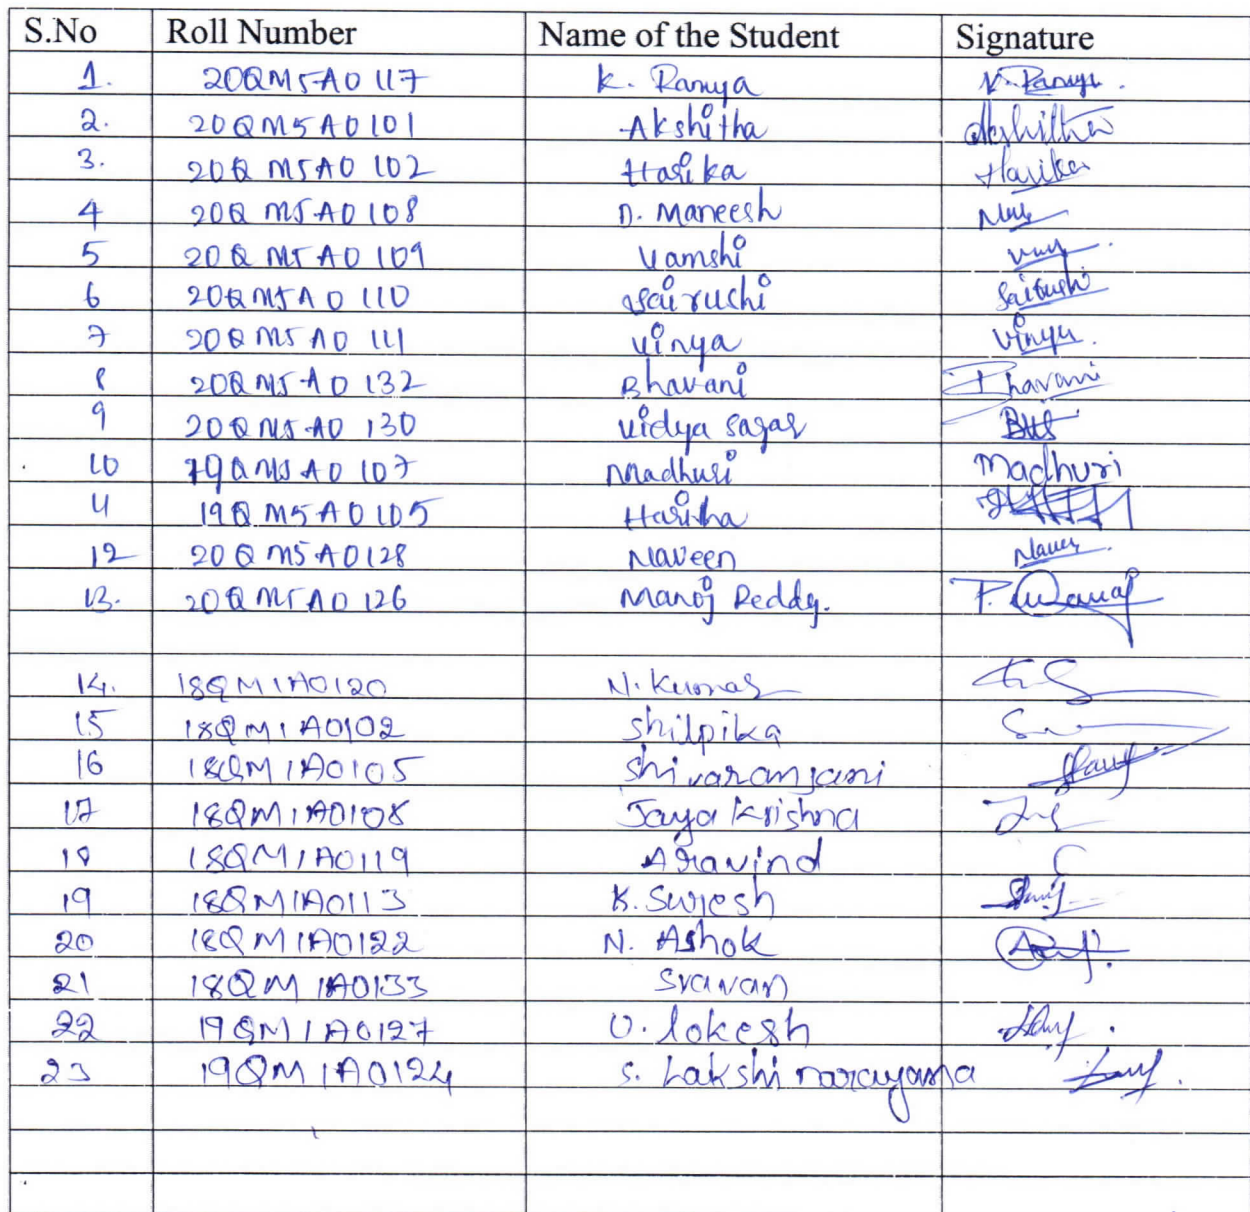 S.No Roll Number Name of the Student Signature
1. 20QM5A0117 K. Ramya K. Ramya.
2. 20QM5A0101 Akshitha Akshitha
3. 20QM5A0102 Harika Harika
4 20QM5A0108 D. Maneesh
5 20QM5A0109 Vamshi
6 20QM5A0110 Sairushi Sairushi
7 20QM5A0111 Vinya Vinya.
8 20QM5A0132 Bhavani Bhavani
9 20QM5A0130 Vidya Sagar
10 19QM5A0107 Madhuri Madhuri
11 19QM5A0105 Haritha
12 20QM5A0128 Naveen
13. 20QM5A0126 Manoj Reddy.
14. 18QM1A0120 N. Kumar
15 18QM1A0102 Shilpika
16 18QM1A0105 Shivaranjani
17 18QM1A0108 Jaya Krishna
18 18QM1A0119 Aravind
19 18QM1A0113 K. Suresh
20 18QM1A0122 N. Ashok
21 18QM1A0133 Sravan
22 19QM1A0127 U. lokesh
23 19QM1A0124 S. Lakshi narayana